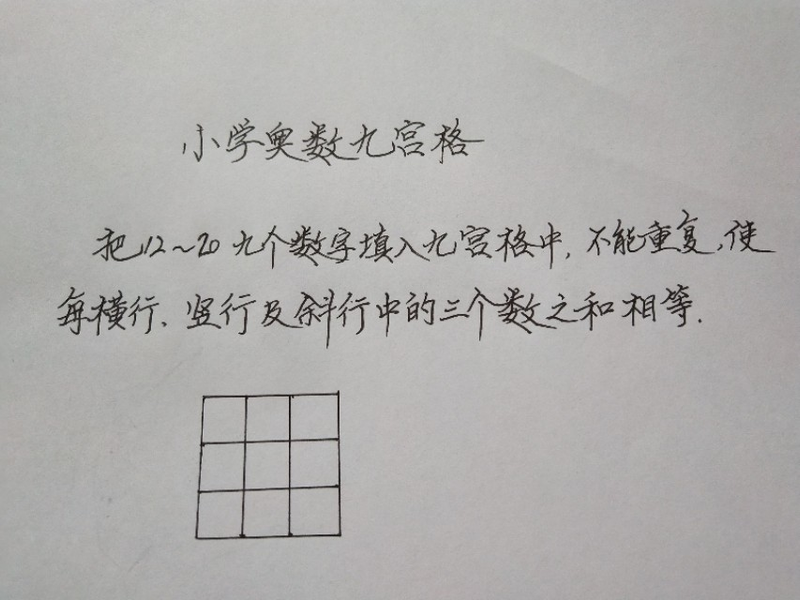 小学奥数九宫格
把12~20九个数字填入九宫格中,不能重复,使
每横行、竖行及斜行中的三个数之和相等.